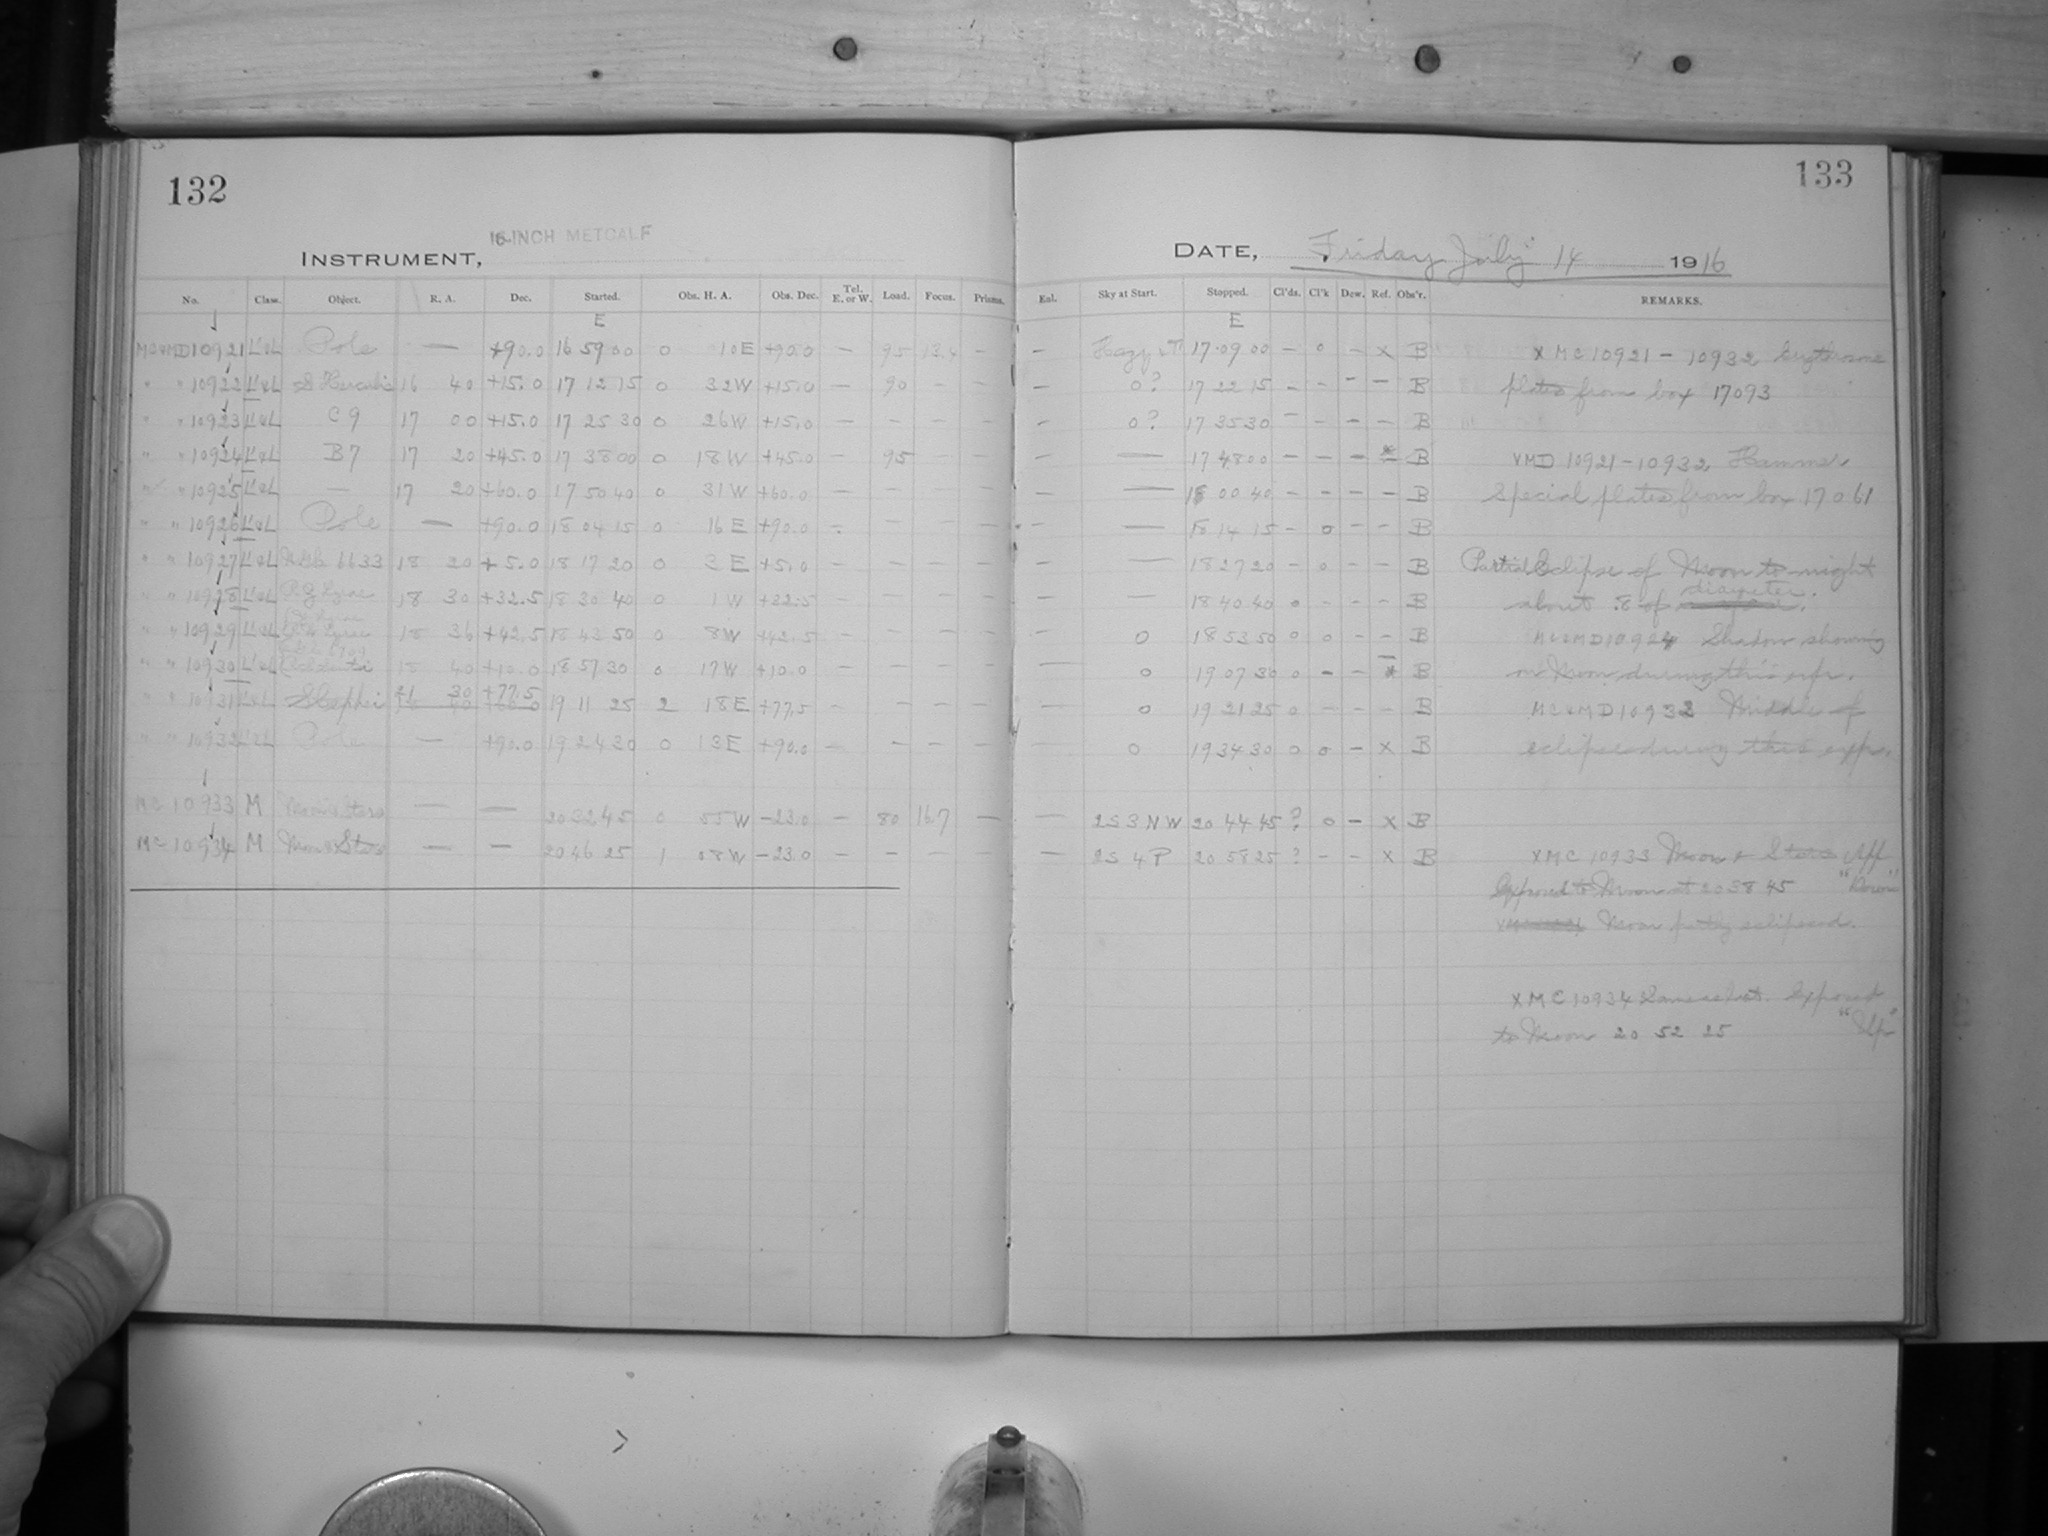 132
16-INCH METCALF
INSTRUMENT,
No. Class. Object. R. A. Dec. Started. Obs. H. A. Obs. Dec. Tel. E. or W. Load. Focus. Prisms.
E
MC&MD10921 L'&L Pole — +90.0 16 59 00 0 10E +90.0 — 95 13.4 —
" " 10922 L'&L S Herculis 16 40 +15.0 17 12 15 0 32W +15.0 — 90 — —
" " 10923 L'&L C 9 17 00 +15.0 17 25 30 0 26W +15.0 — — — —
" " 10924 L'&L B7 17 20 +45.0 17 38 00 0 18W +45.0 — 95 — —
" " 10925 L'&L — 17 20 +60.0 17 50 40 0 31W +60.0 — — — —
" " 10926 L'&L Pole — +90.0 18 04 15 0 16E +90.0 — — — —
" " 10927 L'&L 6633 18 20 +5.0 18 17 20 0 3E +5.0 — — — —
" " 10928 L'&L Lyrae 18 30 +32.5 18 30 40 0 1W +32.5 — — — —
" " 10929 L'&L Lyrae 18 36 +42.5 18 43 50 0 8W +42.5 — — — —
" " 10930 L'&L 18 40 +10.0 18 57 30 0 17W +10.0 — — — —
" " 10931 L'&L S Cephei 21 30 +77.5 19 11 25 2 18E +77.5 — — — —
" " 10932 L'&L Pole — +90.0 19 24 30 0 13E +90.0 — — — —
MC 10933 M Moon & Stars — — 20 32 45 0 55W −23.0 — 80 16.7 —
MC 10934 M Moon & Stars — — 20 46 25 1 08W −23.0 — — — —
133
DATE, Friday July 14 1916
Eal. Sky at Start. Stopped. Cl'ds. Cl'k Dew. Ref. Obs'r. REMARKS.
E
— Hazy 17 09 00 — 0 — x B x MC 10921 - 10932
— 0? 17 22 15 — — — — B plates from box 17093
— 0? 17 35 30 — — — — B
— — 17 48 00 — — — * B x MD 10921-10932 Hammer
— — 18 00 40 — — — — B Special plates from box 17061
— — 18 14 15 — 0 — — B
— — 18 27 20 — 0 — — B Partial Eclipse of Moon to-night
— — 18 40 40 0 — — — B about .8 of diameter.
— 0 18 53 50 0 0 — — B MC&MD10924 Shadow showing
— 0 19 07 30 0 — — * B on Moon during this exp.
— 0 19 21 25 0 — — — B MC&MD10932 Middle of
— 0 19 34 30 0 0 — x B eclipse during this exp.
— 2S3NW 20 44 45 ? 0 — x B
— 2S 4P 20 58 25 ? — — x B x MC 10933 Moon & Stars
Exposed to Moon at 20 38 45 "Down"
Moon partly eclipsed.
x MC 10934 Same as last. Exposed
to Moon 20 52 25 "Up"